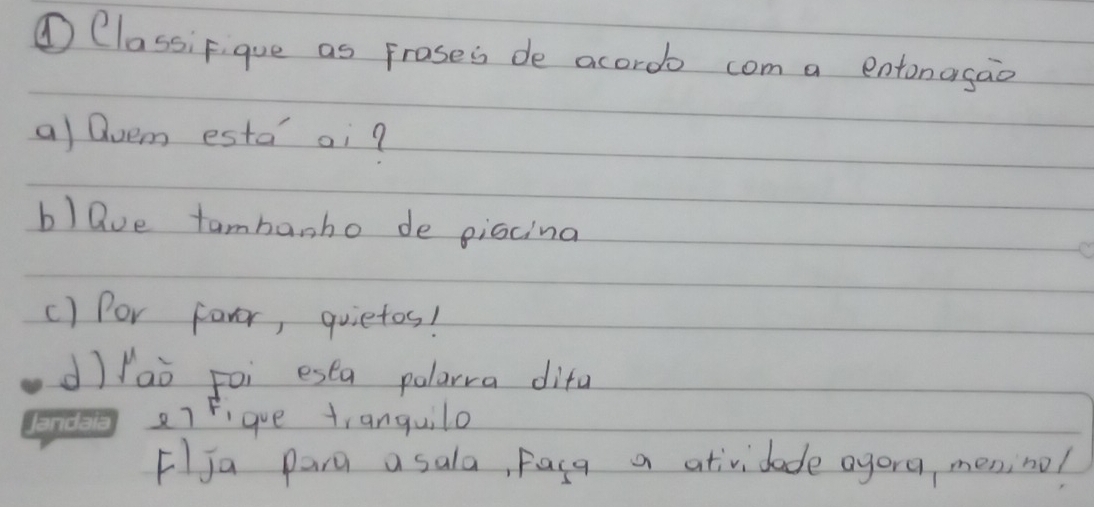 ① Classifique as Frases de acordo com a entonação
a) Quem está ai?
b) Que tamanho de piscina
c) Por favor, quietos!
d) Não foi esta palavra dita
Jandaia
e) Fique tranquilo
F) Ja para a sala, Faça a atividade agora, menino!